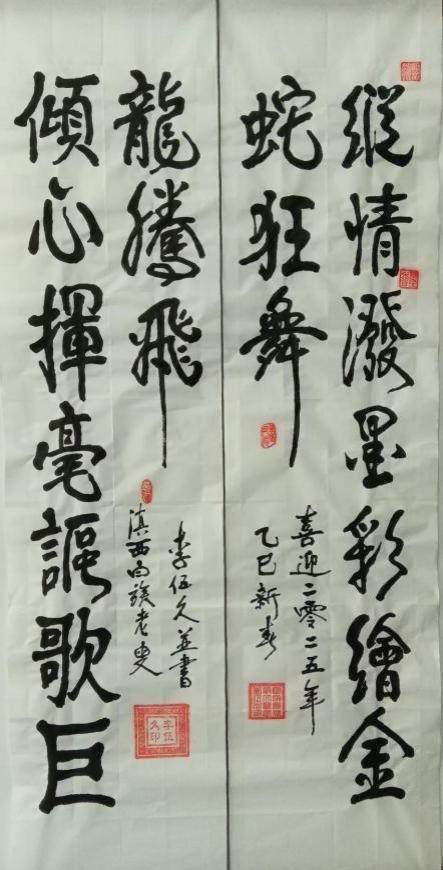 縱情潑墨彩繪金
蛇狂舞
喜迎二零二五年
乙巳新春
傾心揮毫謳歌巨
龍騰飛
李伍久並書
滇西白族老叟
李伍
久印